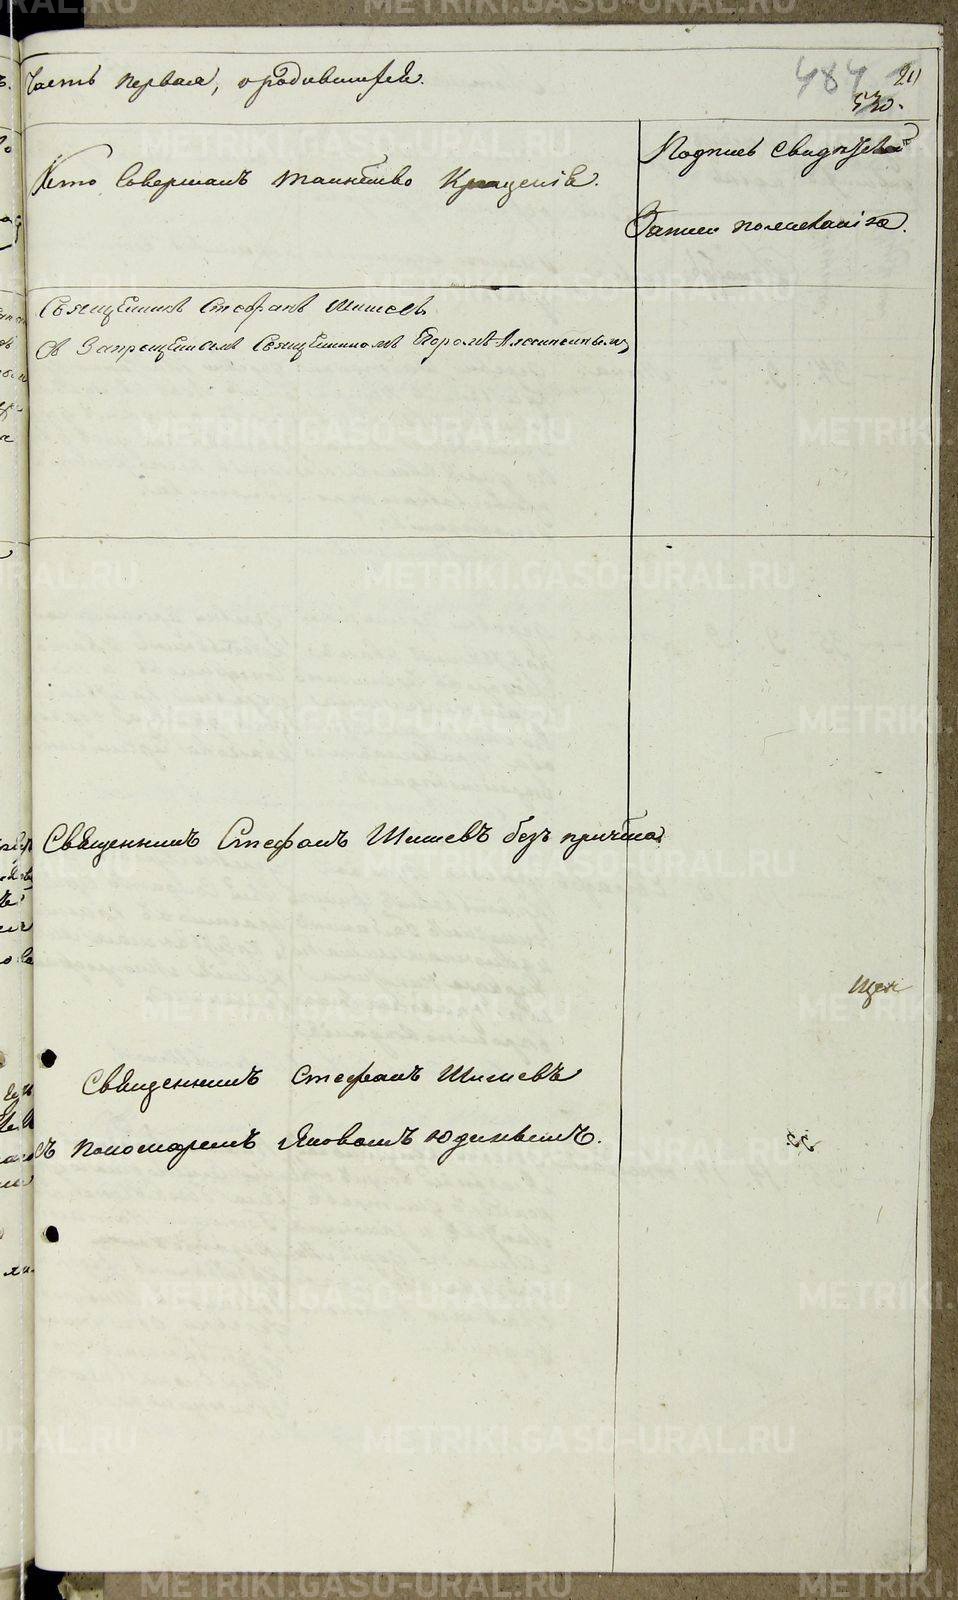 Часть первая, о родившихся.
484 20
530.
Кто совершалъ таинство Крещенія.
Подпись свидѣтелей
Записи по желанію.
Священникъ Стефанъ Шишевъ
съ Запрещеннымъ Священникомъ Егоромъ
Священникъ Стефанъ Шишевъ безъ причта
Священникъ Стефанъ Шишевъ
съ пономаремъ Яковомъ Юдинымъ.
METRIKI.GASO-URAL.RU